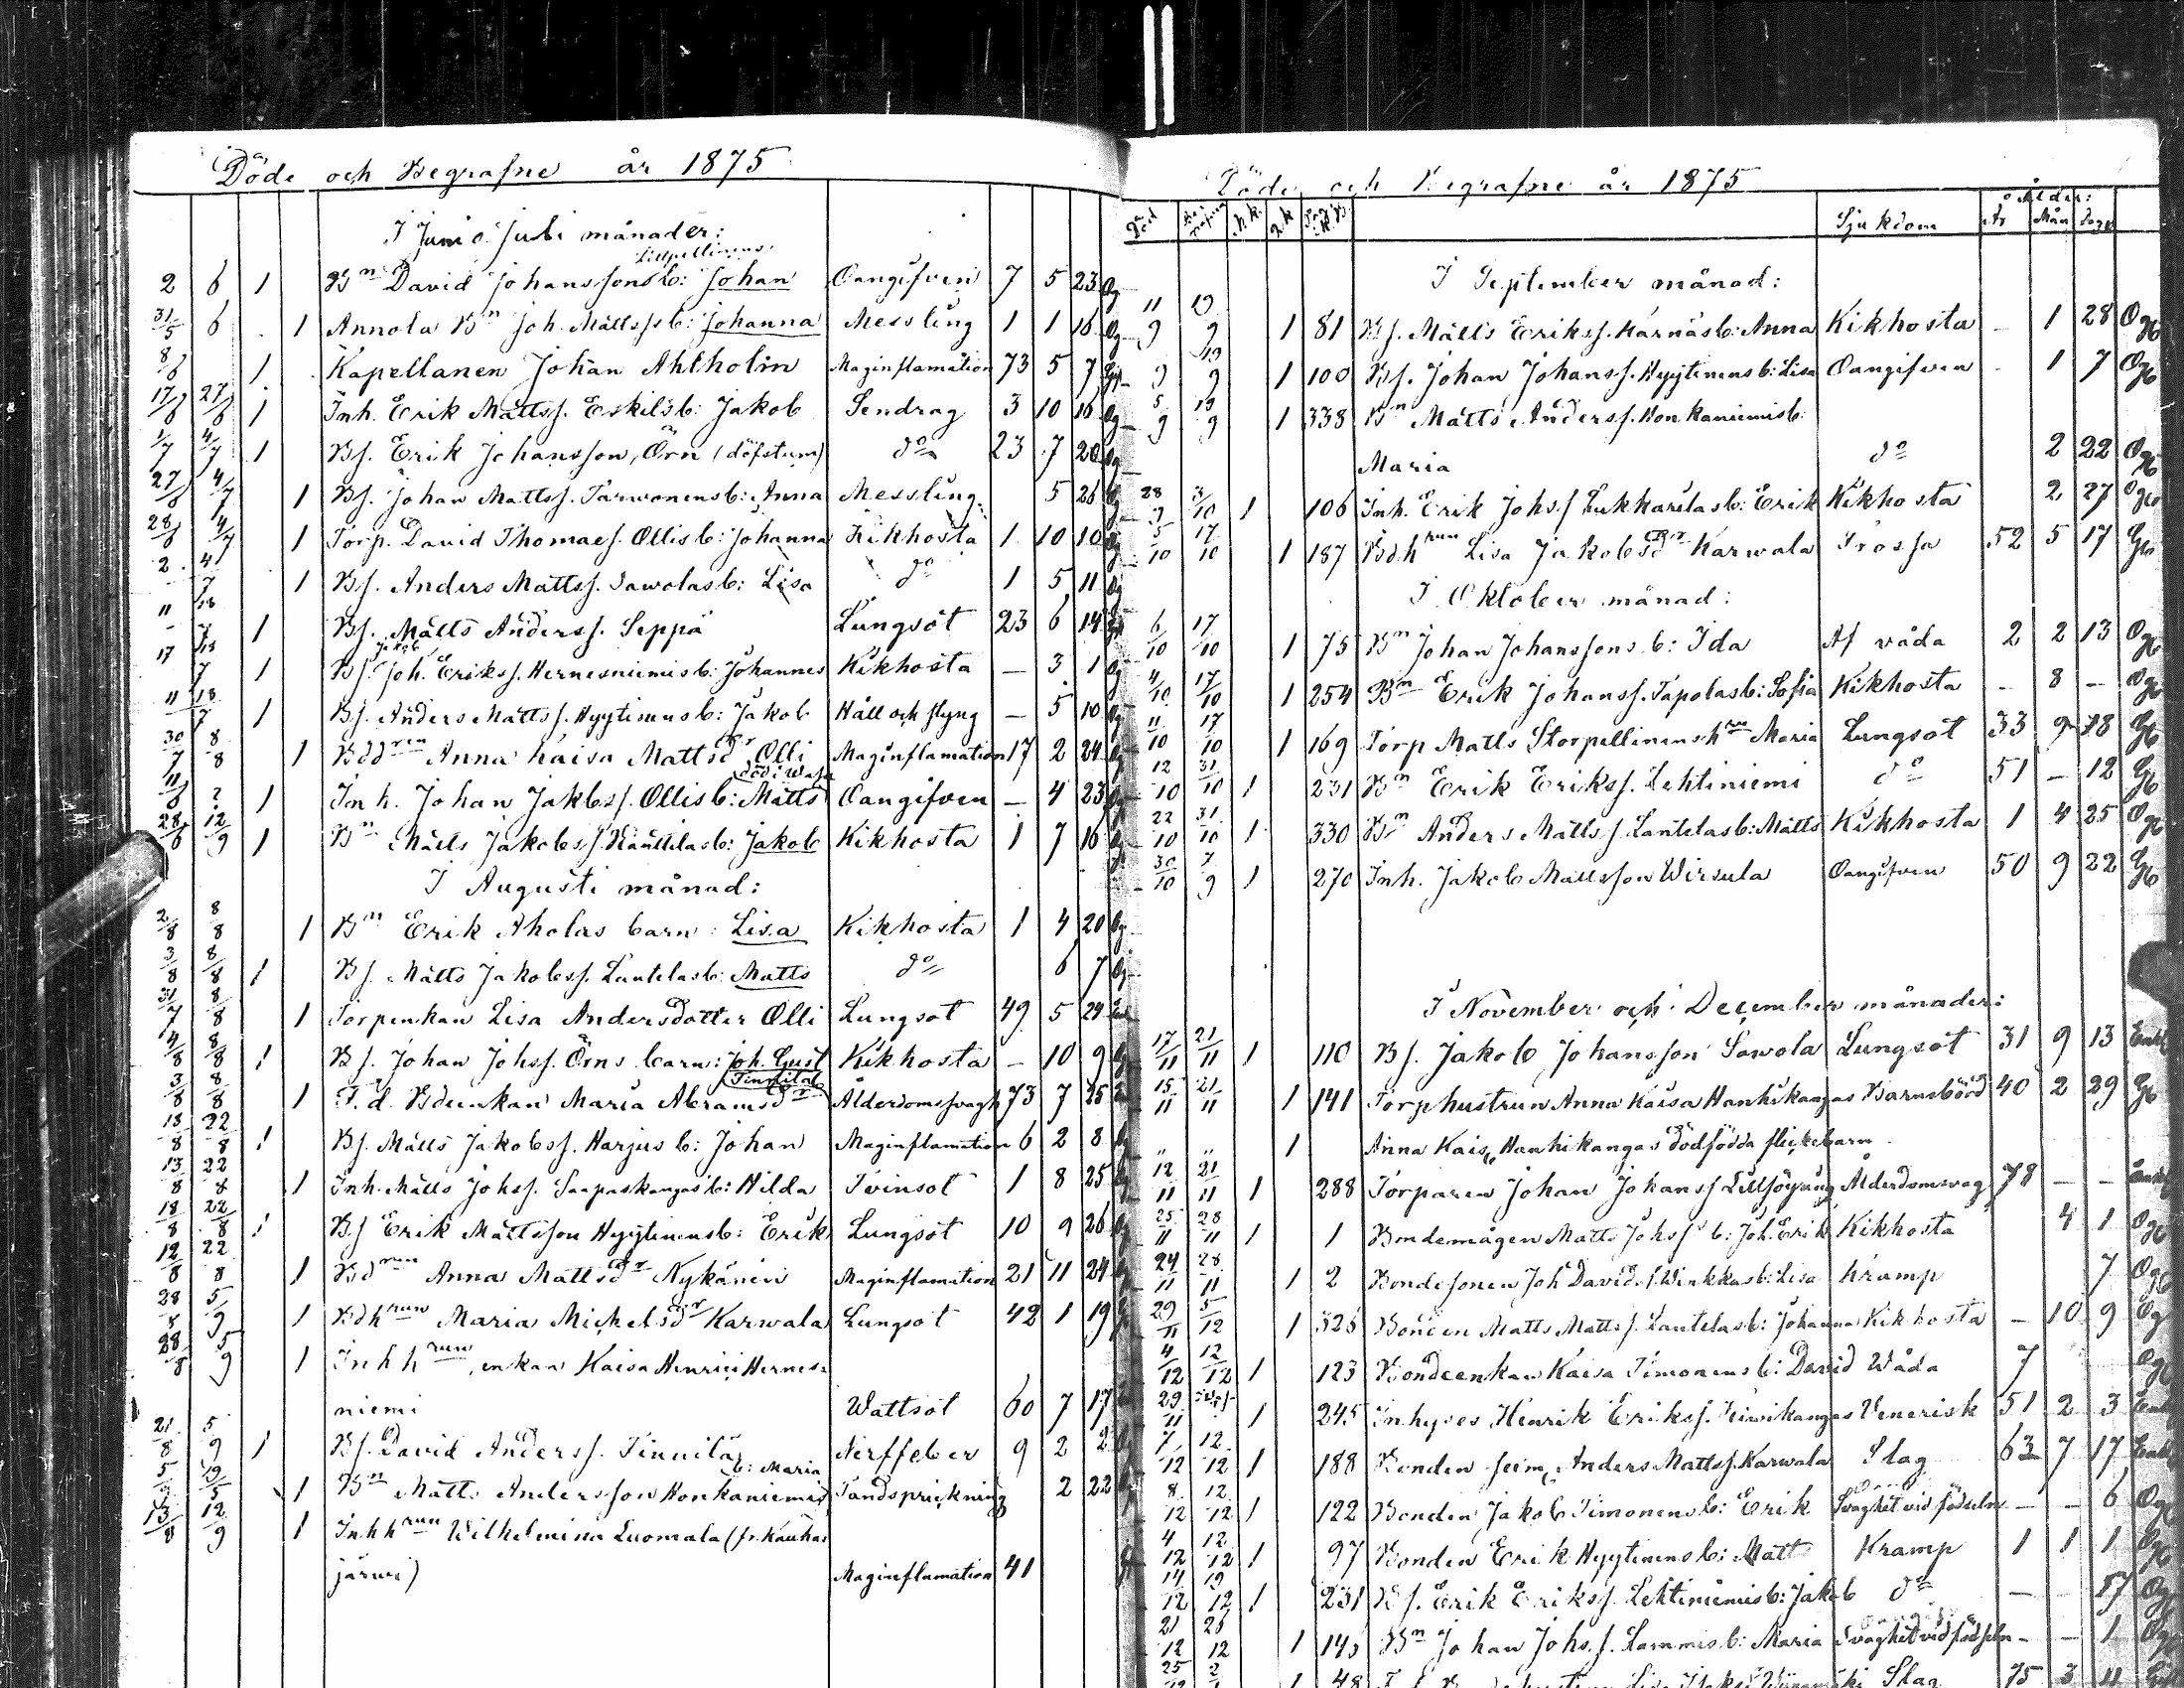 Döde och Begrafne år 1875
I Juni o. Juli månader:
Lillpellinens
2 6 1 Bn David Johanssons b: Johan Oangifven 7 5 23 Og
31/5 6 1 Annola Bn Joh. Mattss b: Johanna Messling 1 1 16 Og
8/6 1 Kapellanen Johan Ahlholm Maginflamation 73 5 7 Gift
17/6 27/6 1 Inh. Erik Mattss. Eskils b: Jakob Sendrag 3 10 16 Og
1/7 4/7 1 Bs. Erik Johansson, Örn (döfstum) do 23 7 20 Og
27/6 4/7 1 Bs. Johan Mattss. Tarwonens b: Anna Messling 5 26
28/6 4/7 1 Torp. David Thomaes. Ollis b: Johanna Kikhosta 1 10 10 Og
2 4/7 1 Bs. Anders Mattss. Sawolas b: Lisa do 1 5 11 Og
11 18/7 1 Bs. Matts Anderss. Seppä Lungsot 23 6 14
Jakob
17 18/7 1 Bs. Joh. Erikss. Hernesniemis b: Johannes Kikhosta — 3 1 Og
11 18/7 1 Bs. Anders Mattss. Hyytinens b: Jakob Håll och styng — 5 10 Og
30/7 8/8 1 Bddren Anna Kaisa Mattsdr Olli Maginflamation 17 2 24 Og
död i Wasa
11/6 ? 1 Inh. Johan Jakobss. Ollis b: Matts Oangifven — 4 23 Og
28/6 12/9 1 Bn Matts Jakobss. Känttilas b: Jakob Kikhosta 1 7 16 Og
I Augusti månad:
2/8 8/8 1 Bn Erik Aholas barn: Lisa Kikhosta 1 4 20 Og
3/8 8/8 1 Bs. Matts Jakobss. Lantelas b: Matts do 6 7 Og
31/7 8/8 1 Torpenkan Lisa Andersdotter Olli Lungsot 49 5 29 Enk
4/8 8/8 1 Bs. Johan Johss. Örns barn: Joh. Gust Kikhosta — 10 9 Og
Tinnilä
3/8 8/8 1 F.d. Bdeenkan Maria Abramsdr Ålderdomssvagh 73 7 25
18/8 22/8 1 Bs. Matts Jakobss. Harjus b: Johan Maginflamation 6 2 8 Og
13/8 22/8 1 Inh. Matts Johss. Saapaskangas b: Hilda Tvinsot 1 8 25 Og
18/8 22/8 1 Bs Erik Mattsson Hyytinens b: Erik Lungsot 10 9 26 Og
12/8 22/8 1 Bdrun Anna Mattsdr Nykänen Maginflamation 21 11 24
28/8 5/9 1 Bdhrun Maria Michelsdr Karwala Lungsot 42 1 19
28/8 5/9 1 Inhhrun, enkan Kaisa Henrici Hernes=
niemi Wattsot 60 7 17
21/8 5/9 1 Bs. David Anderss. Tinnilä Nerffeber 9 2 2
b: Maria
5/9 19/9 1 Bn Matts Andersson Honkaniemis Tandsprickning 2 22
13/8 12/9 1 Inhhrun Wilhelmina Luomala (fr. Kauha=
järwi) Maginflamation 41
Döde och Begrafne år 1875
Död Begrafne M.k. Q.k Pag. i K.B. Sjukdom Ålder: År Mån Dagar
I September månad:
11/9 19/9 1 81 Bs. Matts Erikss. Harnäs b: Anna Kikhosta — 1 28 Og
9 19/9 1 100 Bs. Johan Johanss. Hyytinens b: Lisa Oangifven 1 7 Og
5/9 19/9 1 338 Bn Matts Anderss. Honkaniemis b:
Maria do 2 22 Og
28/9 3/10 1 106 Inh. Erik Johss Lukkarilas b: Erik Kikhosta 2 27 Og
5/10 17/10 1 187 Bdhrun Lisa Jakobsdr Karwala Frossa 52 5 17 G
I Oktober månad:
6/10 17/10 1 75 Bn Johan Johanssons b: Ida Af våda 2 2 13 Og
4/10 17/10 1 254 Bn Erik Johanss. Tapolas b: Sofia Kikhosta — 8 — Og
11/10 17/10 1 169 Torp Matts Storpellinens hru Maria Lungsot 33 9 18 G
12/10 31/10 1 231 Bn Erik Erikss. Lehtiniemi do 51 — 12 G
22/10 31/10 1 330 Bn Anders Mattss. Lantelas b: Matts Kikhosta 1 4 25 Og
30/10 7/9 1 270 Inh. Jakob Mattsson Wirsula Oangifven 50 9 22 G
I November och December månader:
17/11 21/11 1 110 Bs. Jakob Johansson Sawola Lungsot 31 9 13 Enkl
15/11 21/11 1 141 Torphustrun Anna Kaisa Hanhikangas Barnsbörd 40 2 29 G
" " 1 Anna Kaisa Hanhikangas dödfödda flickebarn
12/11 21/11 1 288 Torparen Johan Johanss Lillsöyring Ålderdomsvag 78 — —
25/11 28/11 1 1 Bondemågen Matts Johss b: Joh. Erik Kikhosta 4 1 Og
24/11 28/11 1 2 Bondesonen Joh Davids. Winkkas b: Lisa Kramp 7 Og
29/11 5/12 1 326 Bonden Matts Mattss. Lantelas b: Johanna Kikhosta — 10 9 Og
4/12 12/12 1 123 Bondeenkan Kaisa Timonens b: David Wåda 7 Og
29/11 1 245 Inhyses Henrik Erikss. Keisikangas Venerisk 51 2 3 Enkl
7/12 12/12 1 188 Bonden Anders Mattss. Karwala Slag 63 7 17 Enkl
8/12 12/12 1 122 Bonden Jakob Timonens b: Erik Svaghet vid födseln — — 6 Og
4/12 12/12 1 97 Bonden Erik Hyytinens b: Matts Kramp 1 1 1 Og
14/12 19/12 1 231 Bs. Erik Erikss. Lehtiniemis b: Jakob do — 17 Og
21/12 26/12 1 145 Bn Johan Johss. Lammis b: Maria Svaghet vid födseln — — 1 Og
25/12 2/1 1 48 Lisa Slag 75 3 11